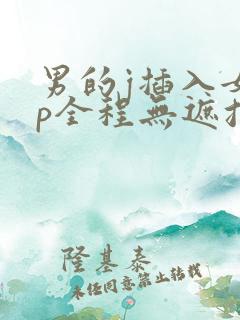 男的j插入女
p全程無遮扌
隆基泰
未经同意禁止转载